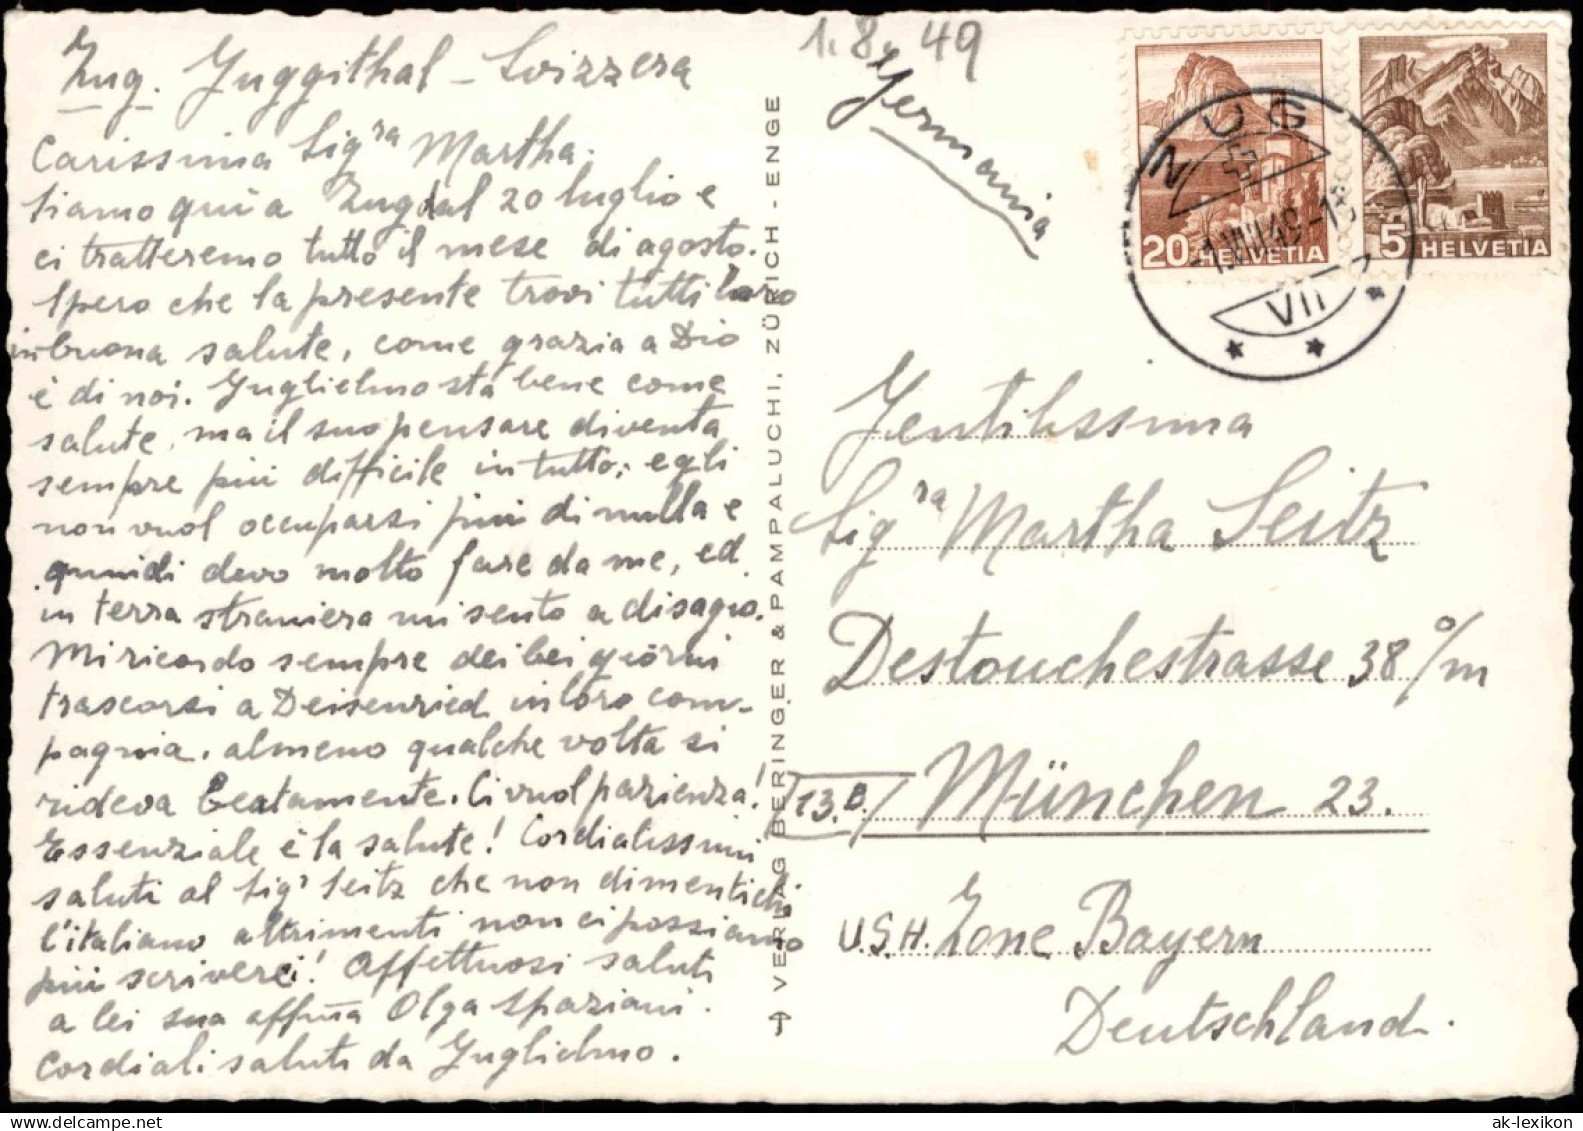 Zug. Guggithal - Svizzera
Carissima Sig^ra Martha.
siamo qui a Zug dal 20 luglio e
ci tratteremo tutto il mese di agosto.
Spero che la presente trovi tutti loro
in buona salute, come grazia a Dio
è di noi. Guglielmo sta bene come
salute, ma il suo pensare diventa
sempre più difficile in tutto; egli
non vuol occuparsi più di nulla e
quindi devo molto fare da me, ed
in terra straniera mi sento a disagio.
Mi ricordo sempre dei bei giorni
trascorsi a Deisenried in loro com-
pagnia, almeno qualche volta si
rideva beatamente. Ci vuol pazienza!
Essenziale è la salute! Cordialissimi
saluti al Sig^r Seitz che non dimentichi
l'italiano altrimenti non ci possiamo
più scriverci! Affettuosi saluti
a lei sua affma Olga Spaziani.
Cordiali saluti da Guglielmo.
VERLAG BERINGER & PAMPALUCHI, ZÜRICH - ENGE
1.8.49
Germania
20 HELVETIA
5 HELVETIA
ZUG
-1.VIII.49-18
VII
Gentilissima
Sig^ra Martha Seitz
Destouchestrasse 38 o/m
13.B. München 23.
U.S.H. Zone Bayern
Deutschland.
ak-lexikon